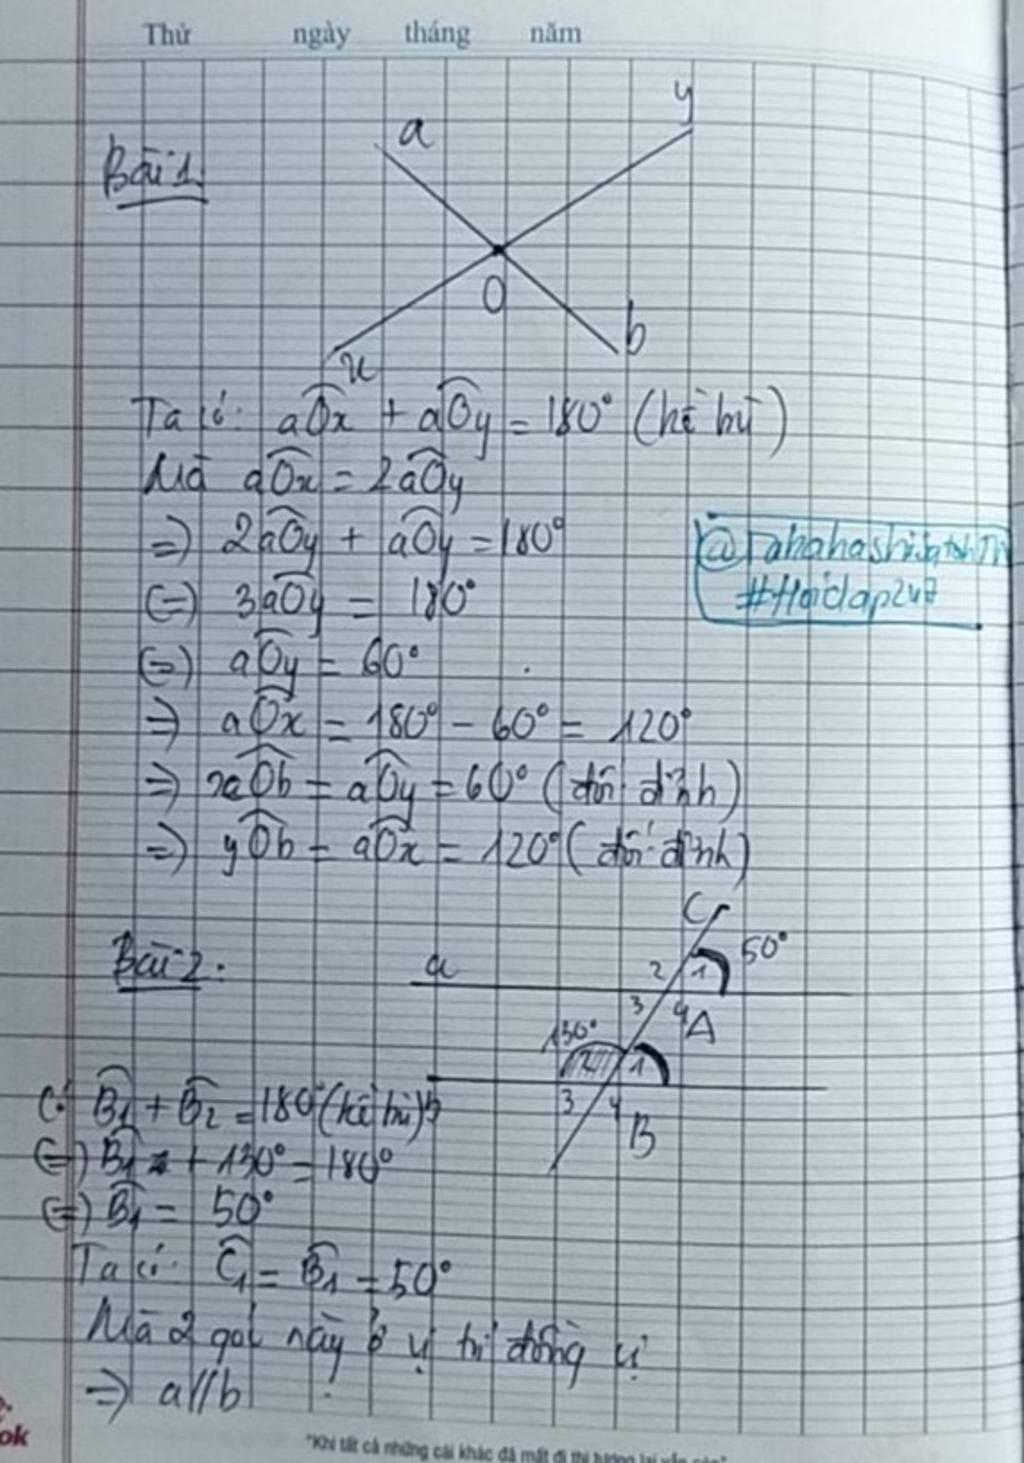 Thứ ngày tháng năm
Bài 1:
a
y
O
x
b
Ta có: aOx + aOy = 180° (kề bù)
Mà aOx = 2aOy
=> 2aOy + aOy = 180°
(=) 3aOy = 180°
(=) aOy = 60°
=> aOx = 180° - 60° = 120°
=> xOb = aOy = 60° (đối đỉnh)
=> yOb = aOx = 120° (đối đỉnh)
#Hoidap247
Bài 2:
C
50°
a
2 1
3 4 A
130°
2 1
b
3 4 B
Có B1 + B2 = 180° (kề bù)
(=) B1 + 130° = 180°
(=) B1 = 50°
Ta có: C1 = B1 = 50°
Mà 2 góc này ở vị trí đồng vị
=> a//b
ok
"Khi tất cả những cái khác đã mất đi thì tương lai vẫn còn"